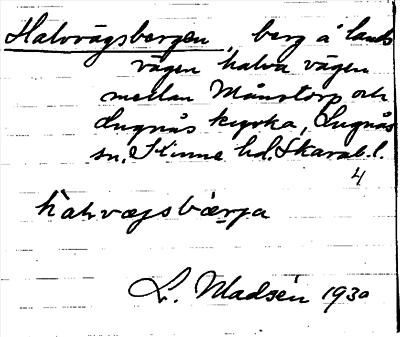 Halvvägsbergen, berg å lands
vägen halva vägen
mellan Månstorp och
Lugnås kyrka, Lugnås
sn, Kinne hd. Skarab. l.
4
hàlvægsbærja
L. Madsén 1930